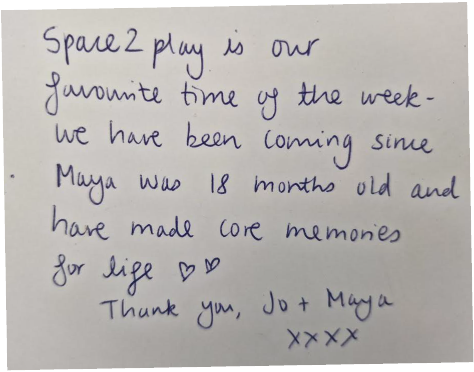 Space2play is our
favourite time of the week-
we have been coming since
Maya was 18 months old and
have made core memories
for life ♡♡
Thank you, Jo + Maya
xxxx